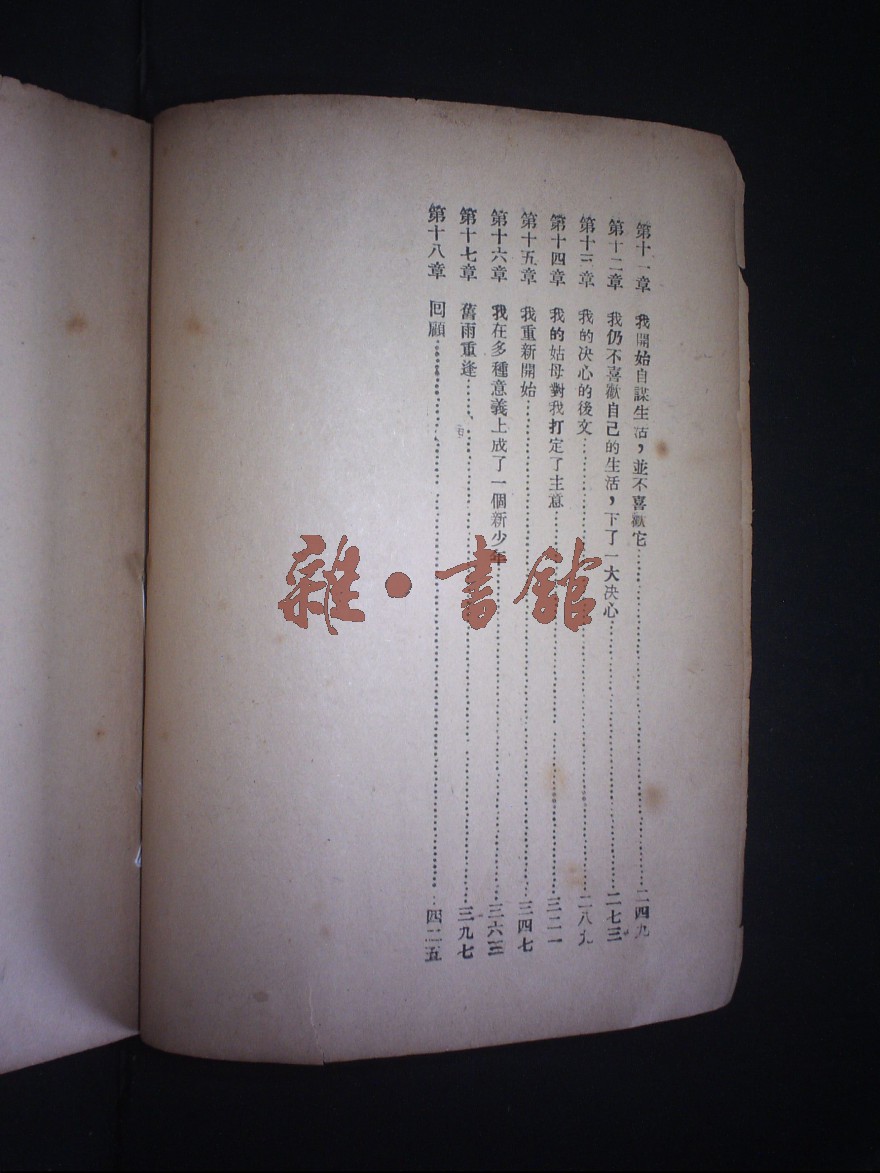 第十一章 我開始自謀生活，並不喜歡它……二四九
第十二章 我仍不喜歡自己的生活，下了一大决心……二七三
第十三章 我的决心的後文……二八九
第十四章 我的姑母對我打定了主意……三二一
第十五章 我重新開始……三四七
第十六章 我在多種意義上成了一個新少年……三六三
第十七章 舊雨重逢……三九七
第十八章 回顧……四二五
雜·書館